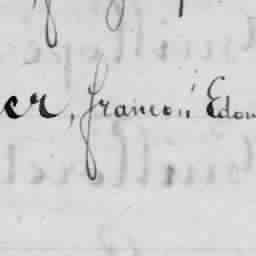 er, françois Edou